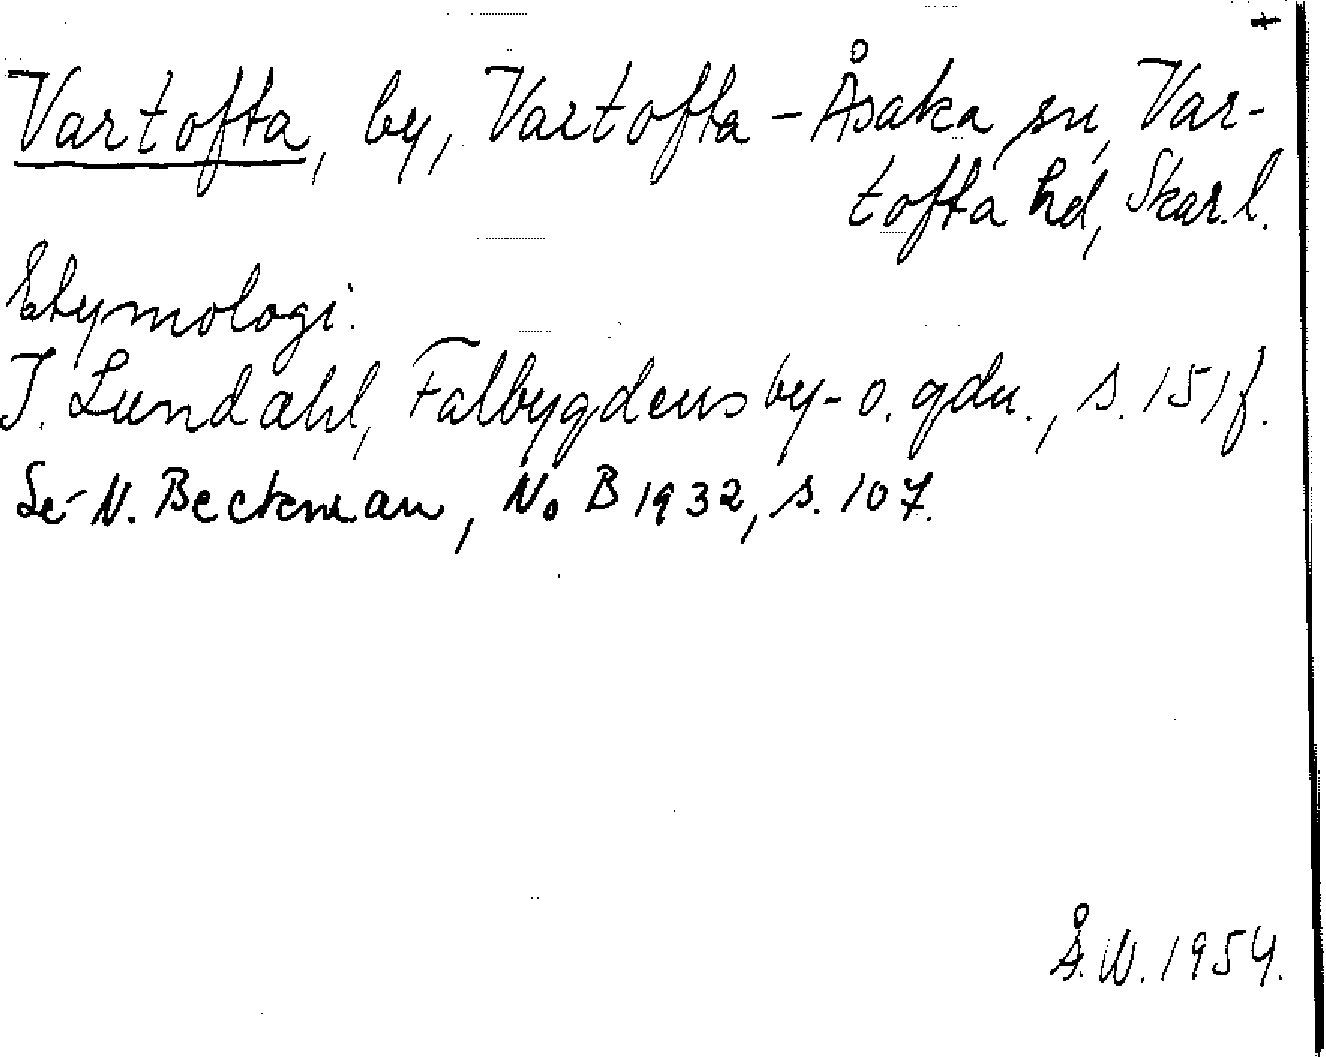 Vartofta, by, Vartofta-Åsaka sn, Var-
tofta hd, Skar.l.
Etymologi:
I. Lundahl, Falbygdens by- o. gdn., s. 151 f.
Se N. Beckman, NoB 1932, s. 107.
Å.W. 1954.